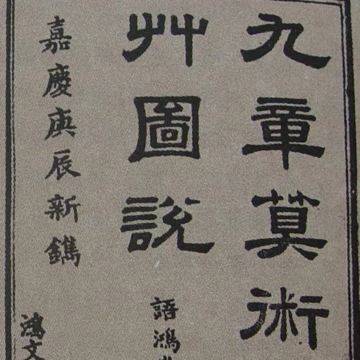 九章算術
艸圖説
語鴻
嘉慶庚辰新鐫
鴻文